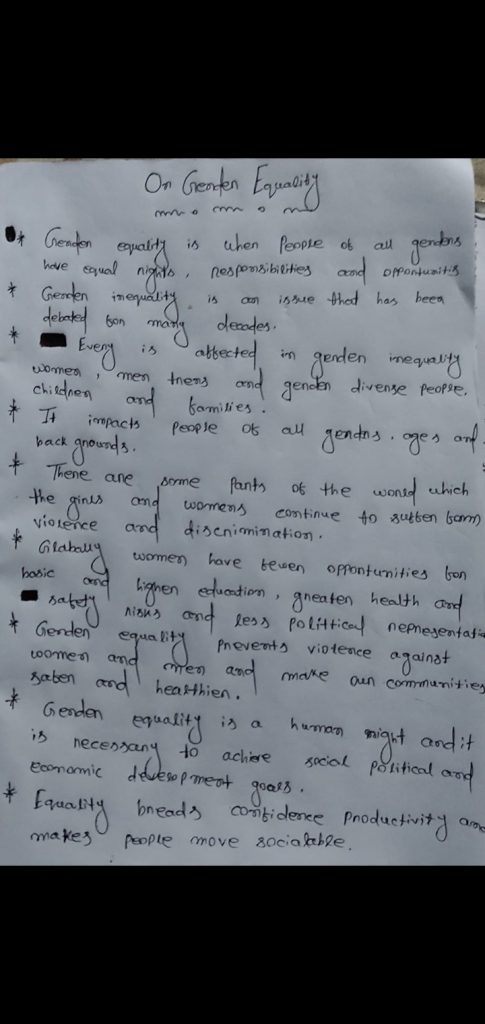 On Gender Equality
* Gender equality is when People of all genders
have equal rights, responsibilities and opportunitis
* Gender inequality is an issue that has been
debated for many decades.
* Every is affected in gender inequality
women, men trens and gender diverse people,
children and families.
* It impacts people of all gendrs, ages and
back grounds.
* There are some Parts of the world which
the girls and womens continue to suffer form
violence and discrimination.
* Glabally women have fewer opportunities for
basic and higher education, greater health and
safety risks and less polittical representatio
* Gender equality prevents violence against
women and men and make our communities
safer and healthier.
* Gender equality is a human right and it
is necessary to achieve social political and
economic development goals.
* Equality breads confidence productivity and
makes people more socialable.